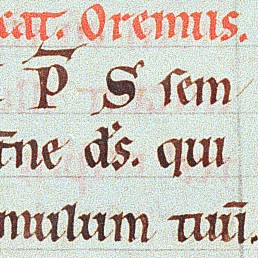 cat. Oremus.
P S sem
tne ds. qui
mulum tuū.